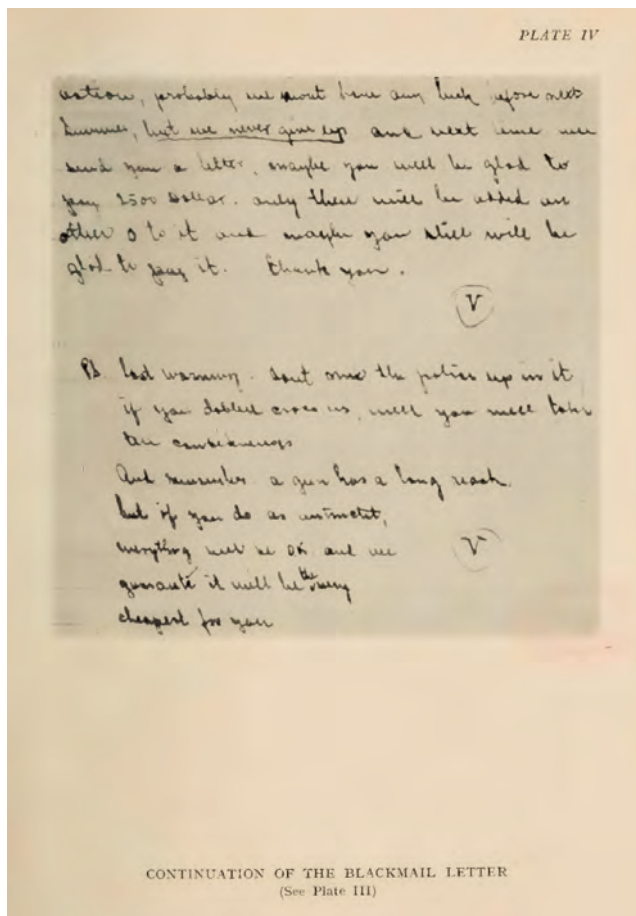 PLATE IV
action, probably we wont have any luck before next
Summer, but we never give up and next time we
send you a letter, maybe you will be glad to
pay 2500 Dollar. only there will be added an
other 0 to it and maybe you still will be
glad to pay it. Thank you.
V
PS. last warning. dont mix the police up in it
if you dobbel cross us, well you will take
the
And remember a gun has a long reach.
but if you do as instructet,
everything will be OK and we
V
guarante it will be the way
cheapest for you
CONTINUATION OF THE BLACKMAIL LETTER
(See Plate III)